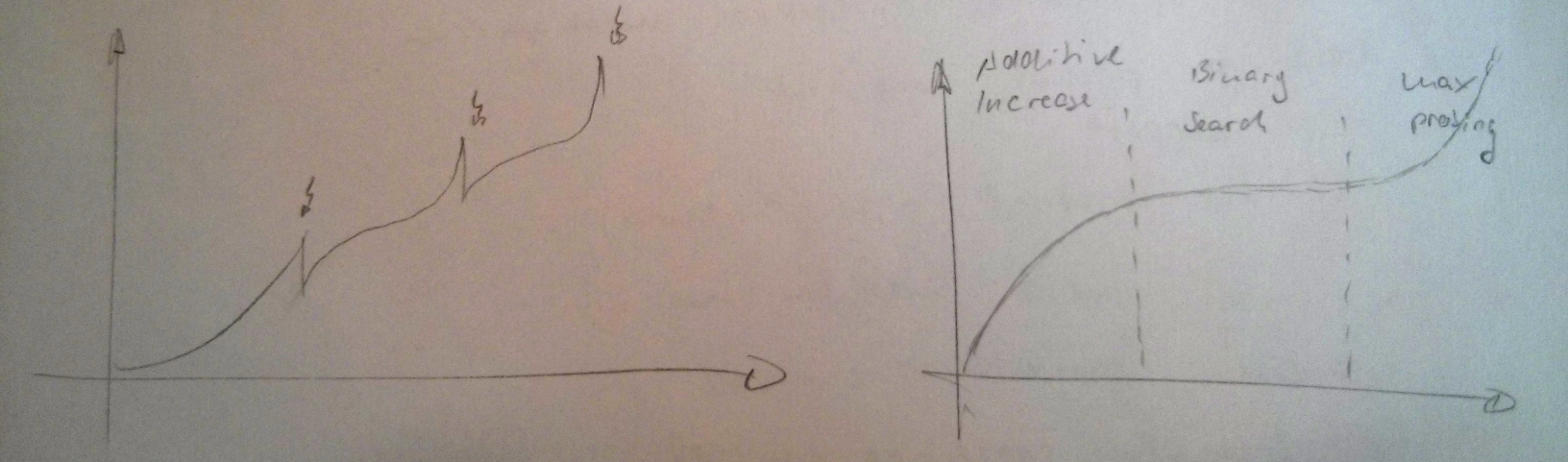 Additive
Increase
Binary
Search
max
probing